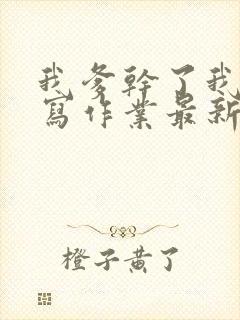 我爹幹了我
寫作業最新
橙子黃了